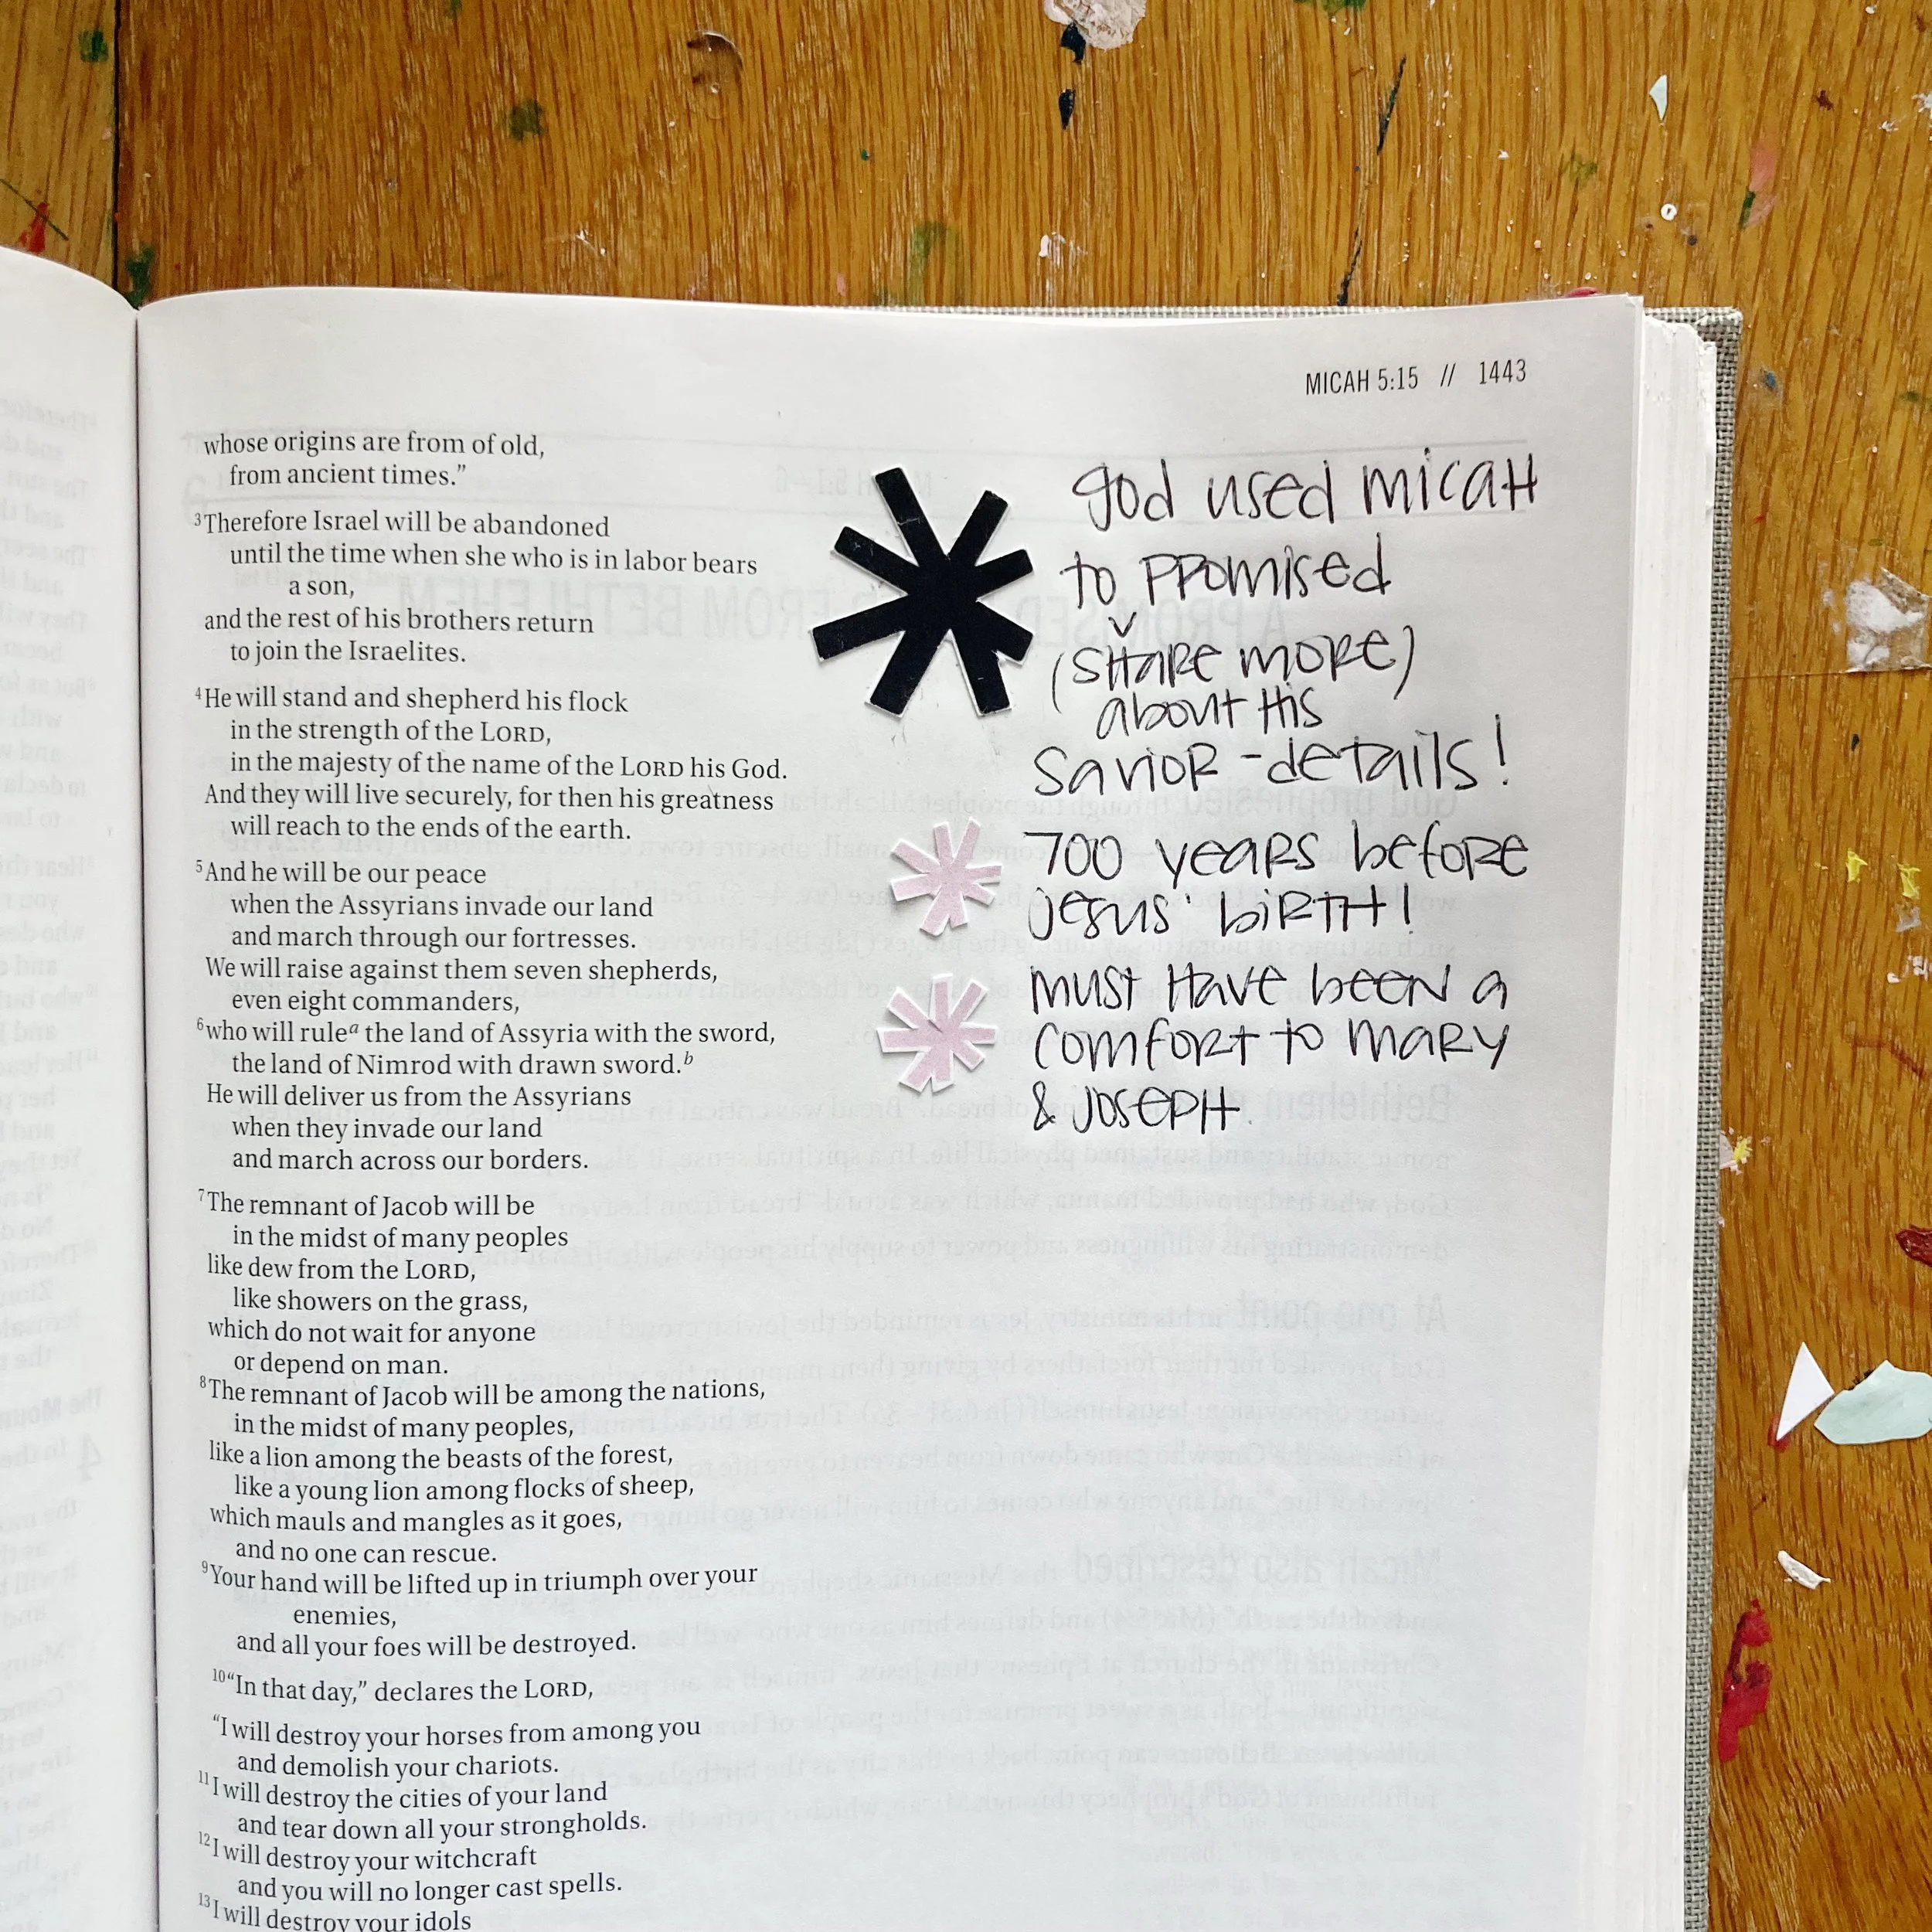 MICAH 5:15 // 1443
whose origins are from of old,
from ancient times.”
3Therefore Israel will be abandoned
until the time when she who is in labor bears
a son,
and the rest of his brothers return
to join the Israelites.
4He will stand and shepherd his flock
in the strength of the LORD,
in the majesty of the name of the LORD his God.
And they will live securely, for then his greatness
will reach to the ends of the earth.
5And he will be our peace
when the Assyrians invade our land
and march through our fortresses.
We will raise against them seven shepherds,
even eight commanders,
6who will rulea the land of Assyria with the sword,
the land of Nimrod with drawn sword.b
He will deliver us from the Assyrians
when they invade our land
and march across our borders.
7The remnant of Jacob will be
in the midst of many peoples
like dew from the LORD,
like showers on the grass,
which do not wait for anyone
or depend on man.
8The remnant of Jacob will be among the nations,
in the midst of many peoples,
like a lion among the beasts of the forest,
like a young lion among flocks of sheep,
which mauls and mangles as it goes,
and no one can rescue.
9Your hand will be lifted up in triumph over your
enemies,
and all your foes will be destroyed.
10“In that day,” declares the LORD,
“I will destroy your horses from among you
and demolish your chariots.
11I will destroy the cities of your land
and tear down all your strongholds.
12I will destroy your witchcraft
and you will no longer cast spells.
13I will destroy your idols
God used Micah
to promised
(share more)
about His
Savior - details!
700 years before
Jesus' birth!
must have been a
comfort to Mary
& Joseph.